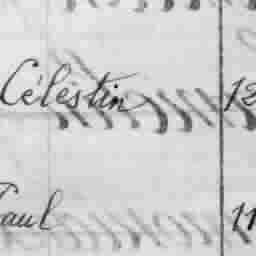 Célestin 12
Paul 11